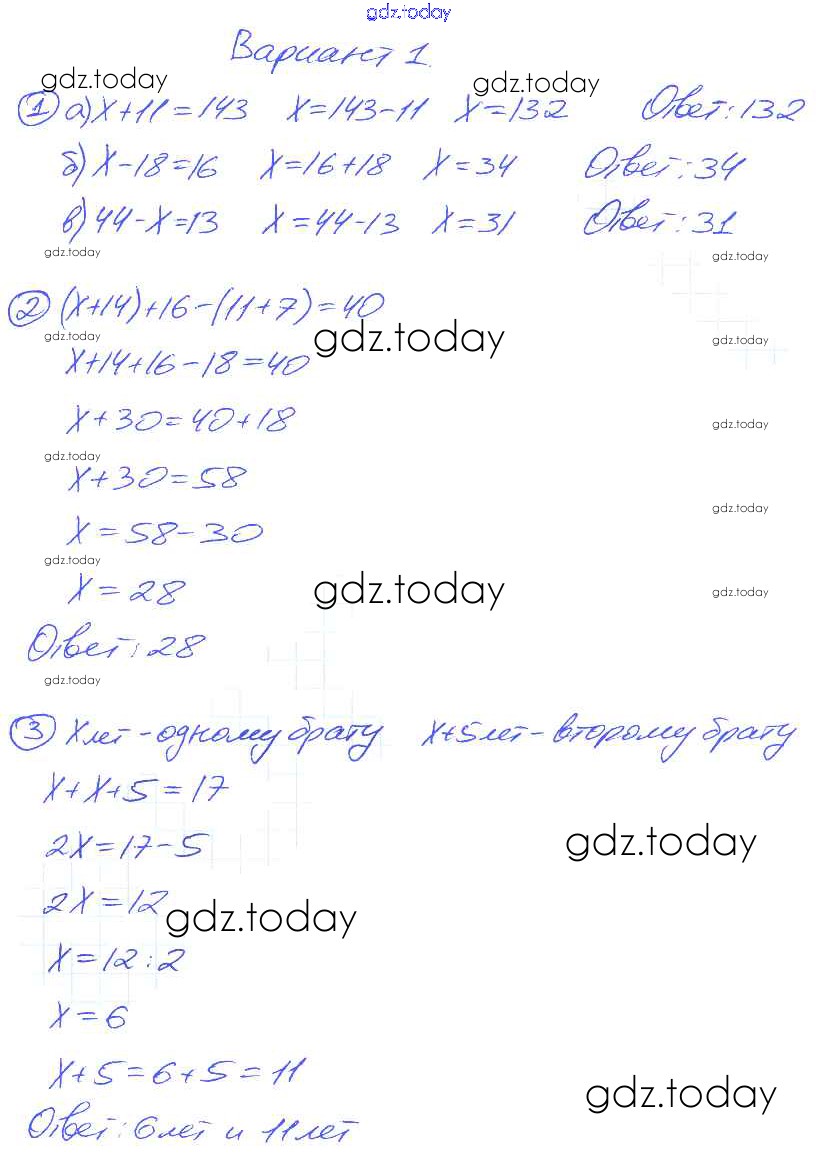 gdz.today
Вариант 1.
gdz.today gdz.today
1 а) x+11=143 x=143-11 x=132 Ответ: 132
б) x-18=16 x=16+18 x=34 Ответ: 34
в) 44-x=13 x=44-13 x=31 Ответ: 31
gdz.today gdz.today
2 (x+14)+16-(11+7)=40
gdz.today gdz.today gdz.today
x+14+16-18=40
x+30=40+18
gdz.today gdz.today
x+30=58
gdz.today
x=58-30
gdz.today
x=28 gdz.today gdz.today
Ответ: 28
gdz.today
3 x лет - одному брату x+5 лет - второму брату
x+x+5=17
2x=17-5 gdz.today
2x=12 gdz.today
x=12:2
x=6
x+5=6+5=11
gdz.today
Ответ: 6 лет и 11 лет